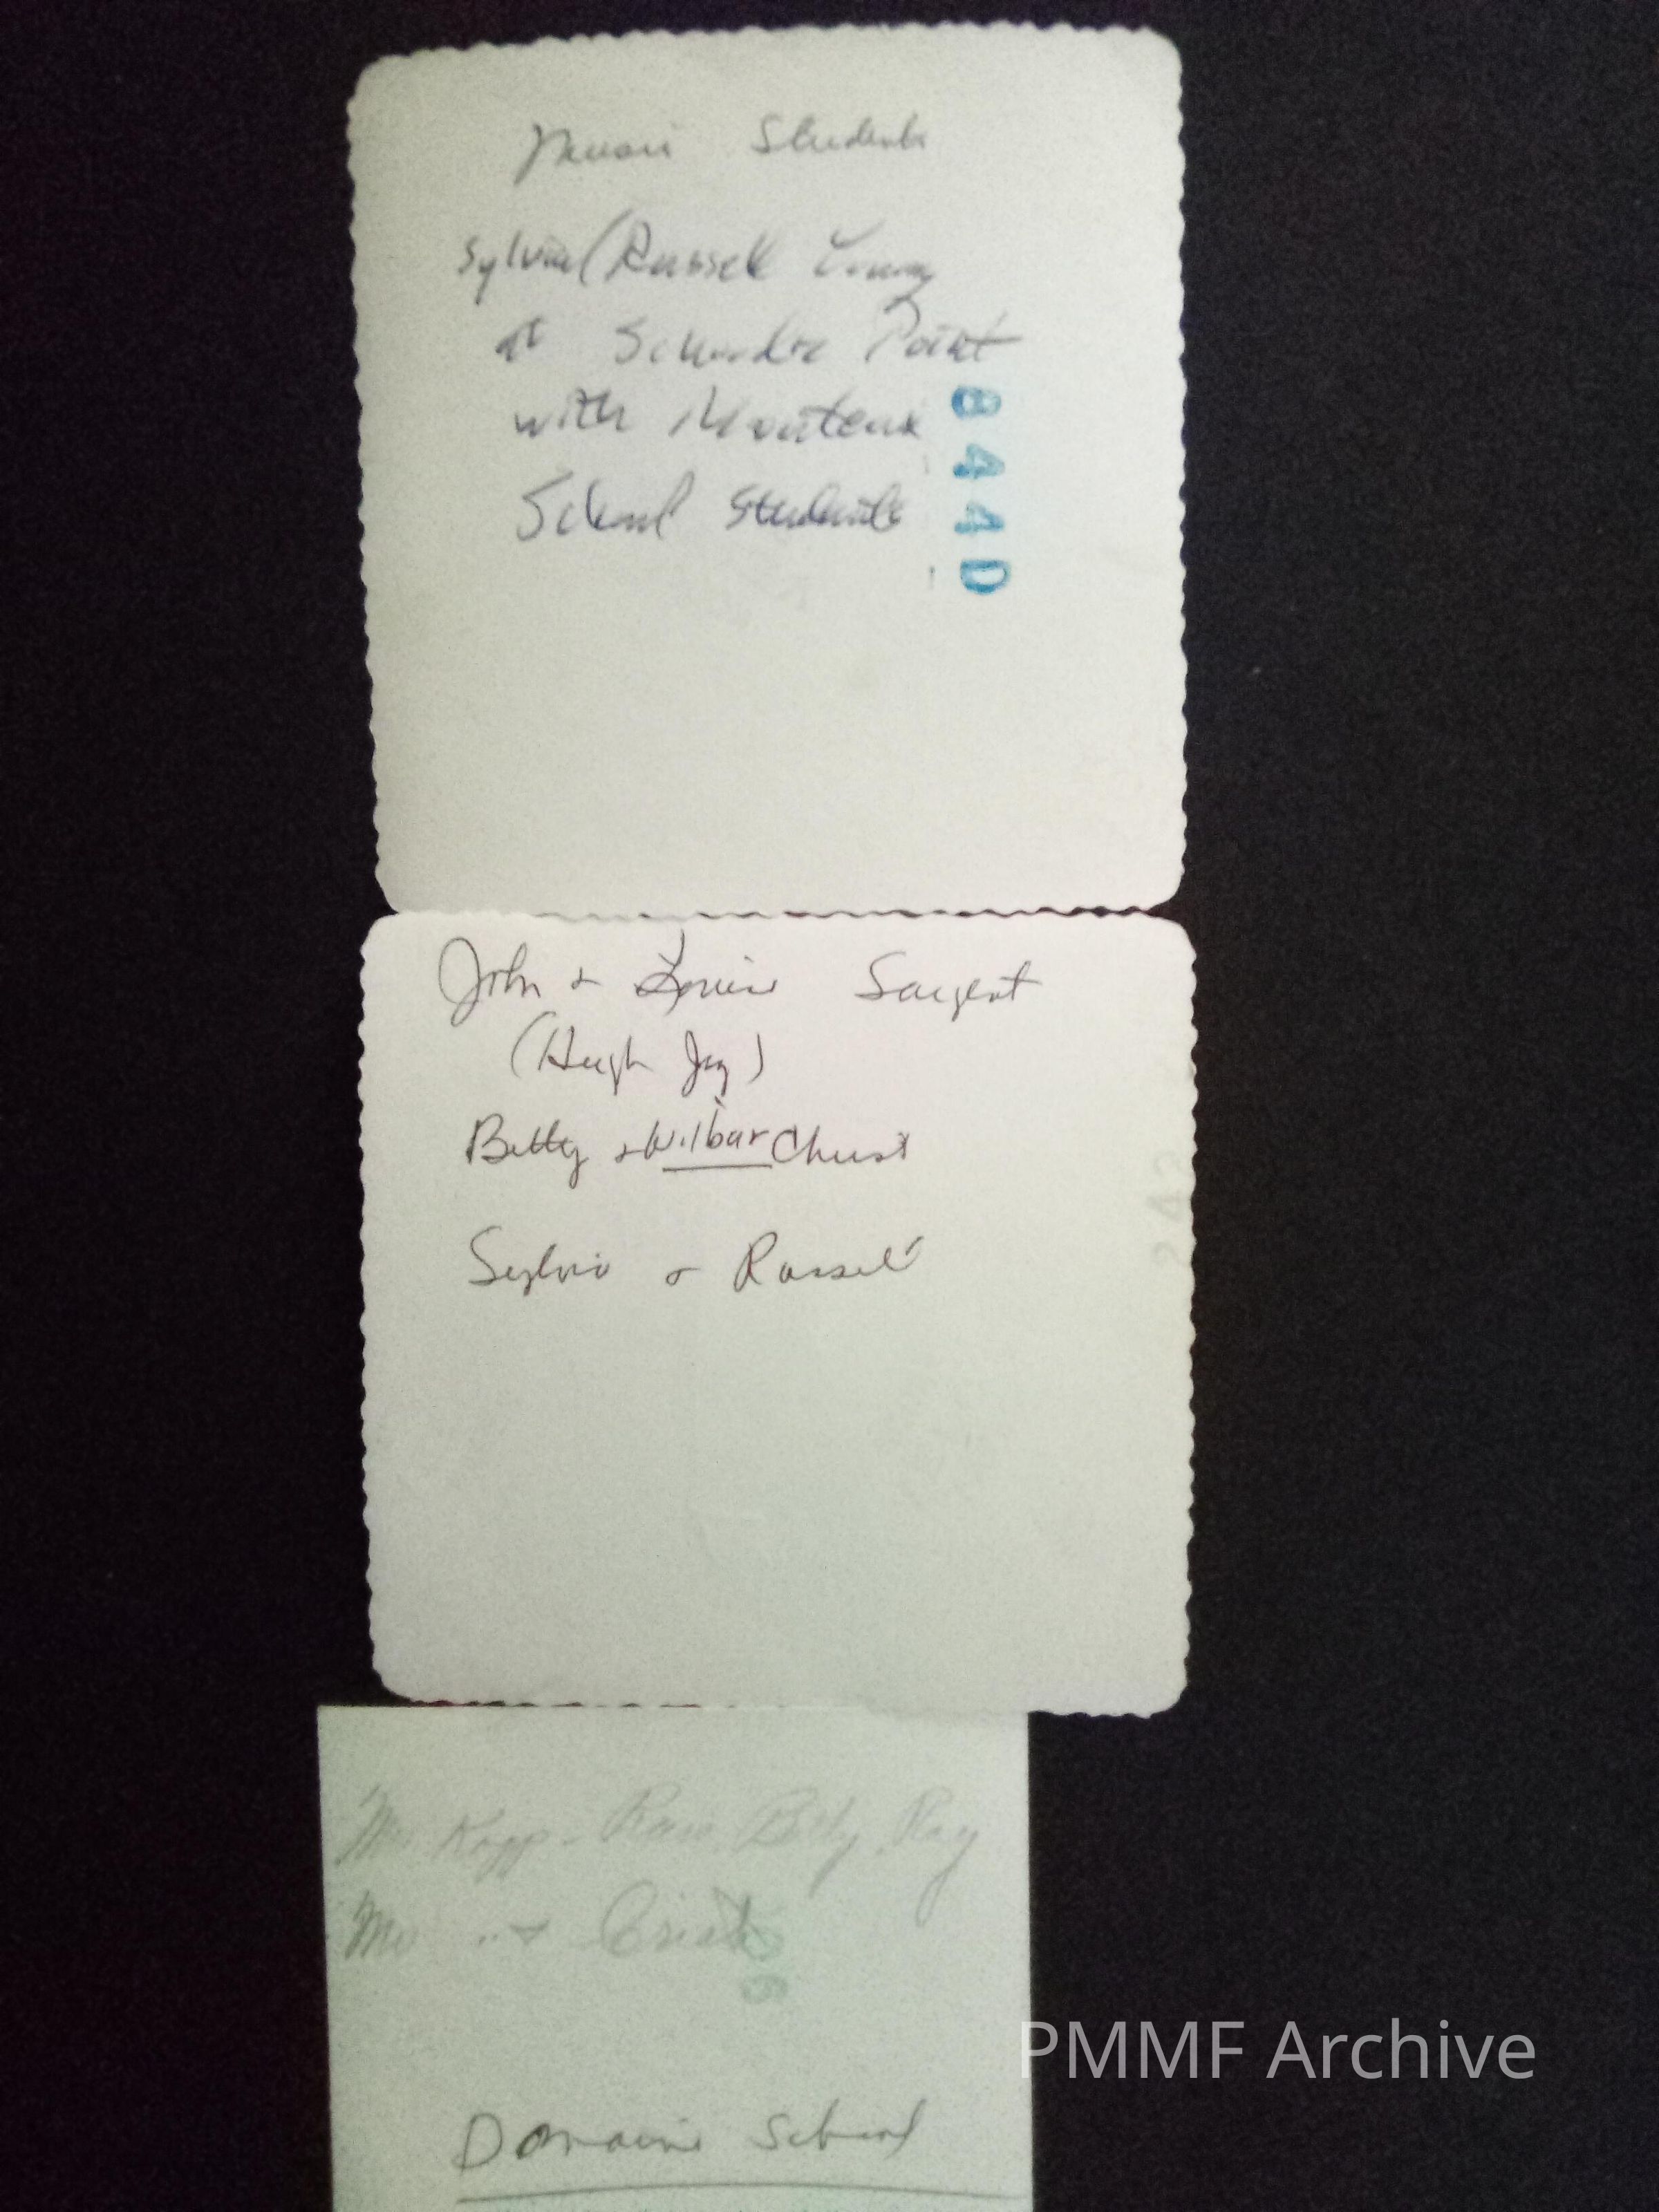 Music Students
Sylvia (Russell Young
at Schoodic Point
with Monteux
School Students
844D
John & Louise Sargent
(Hugh Jay)
Betty & Wilbur Christ
Sylvia & Russell
Mr Kopp - Russ, Betty, Ray
Mr " & Crist
Domaine School
PMMF Archive